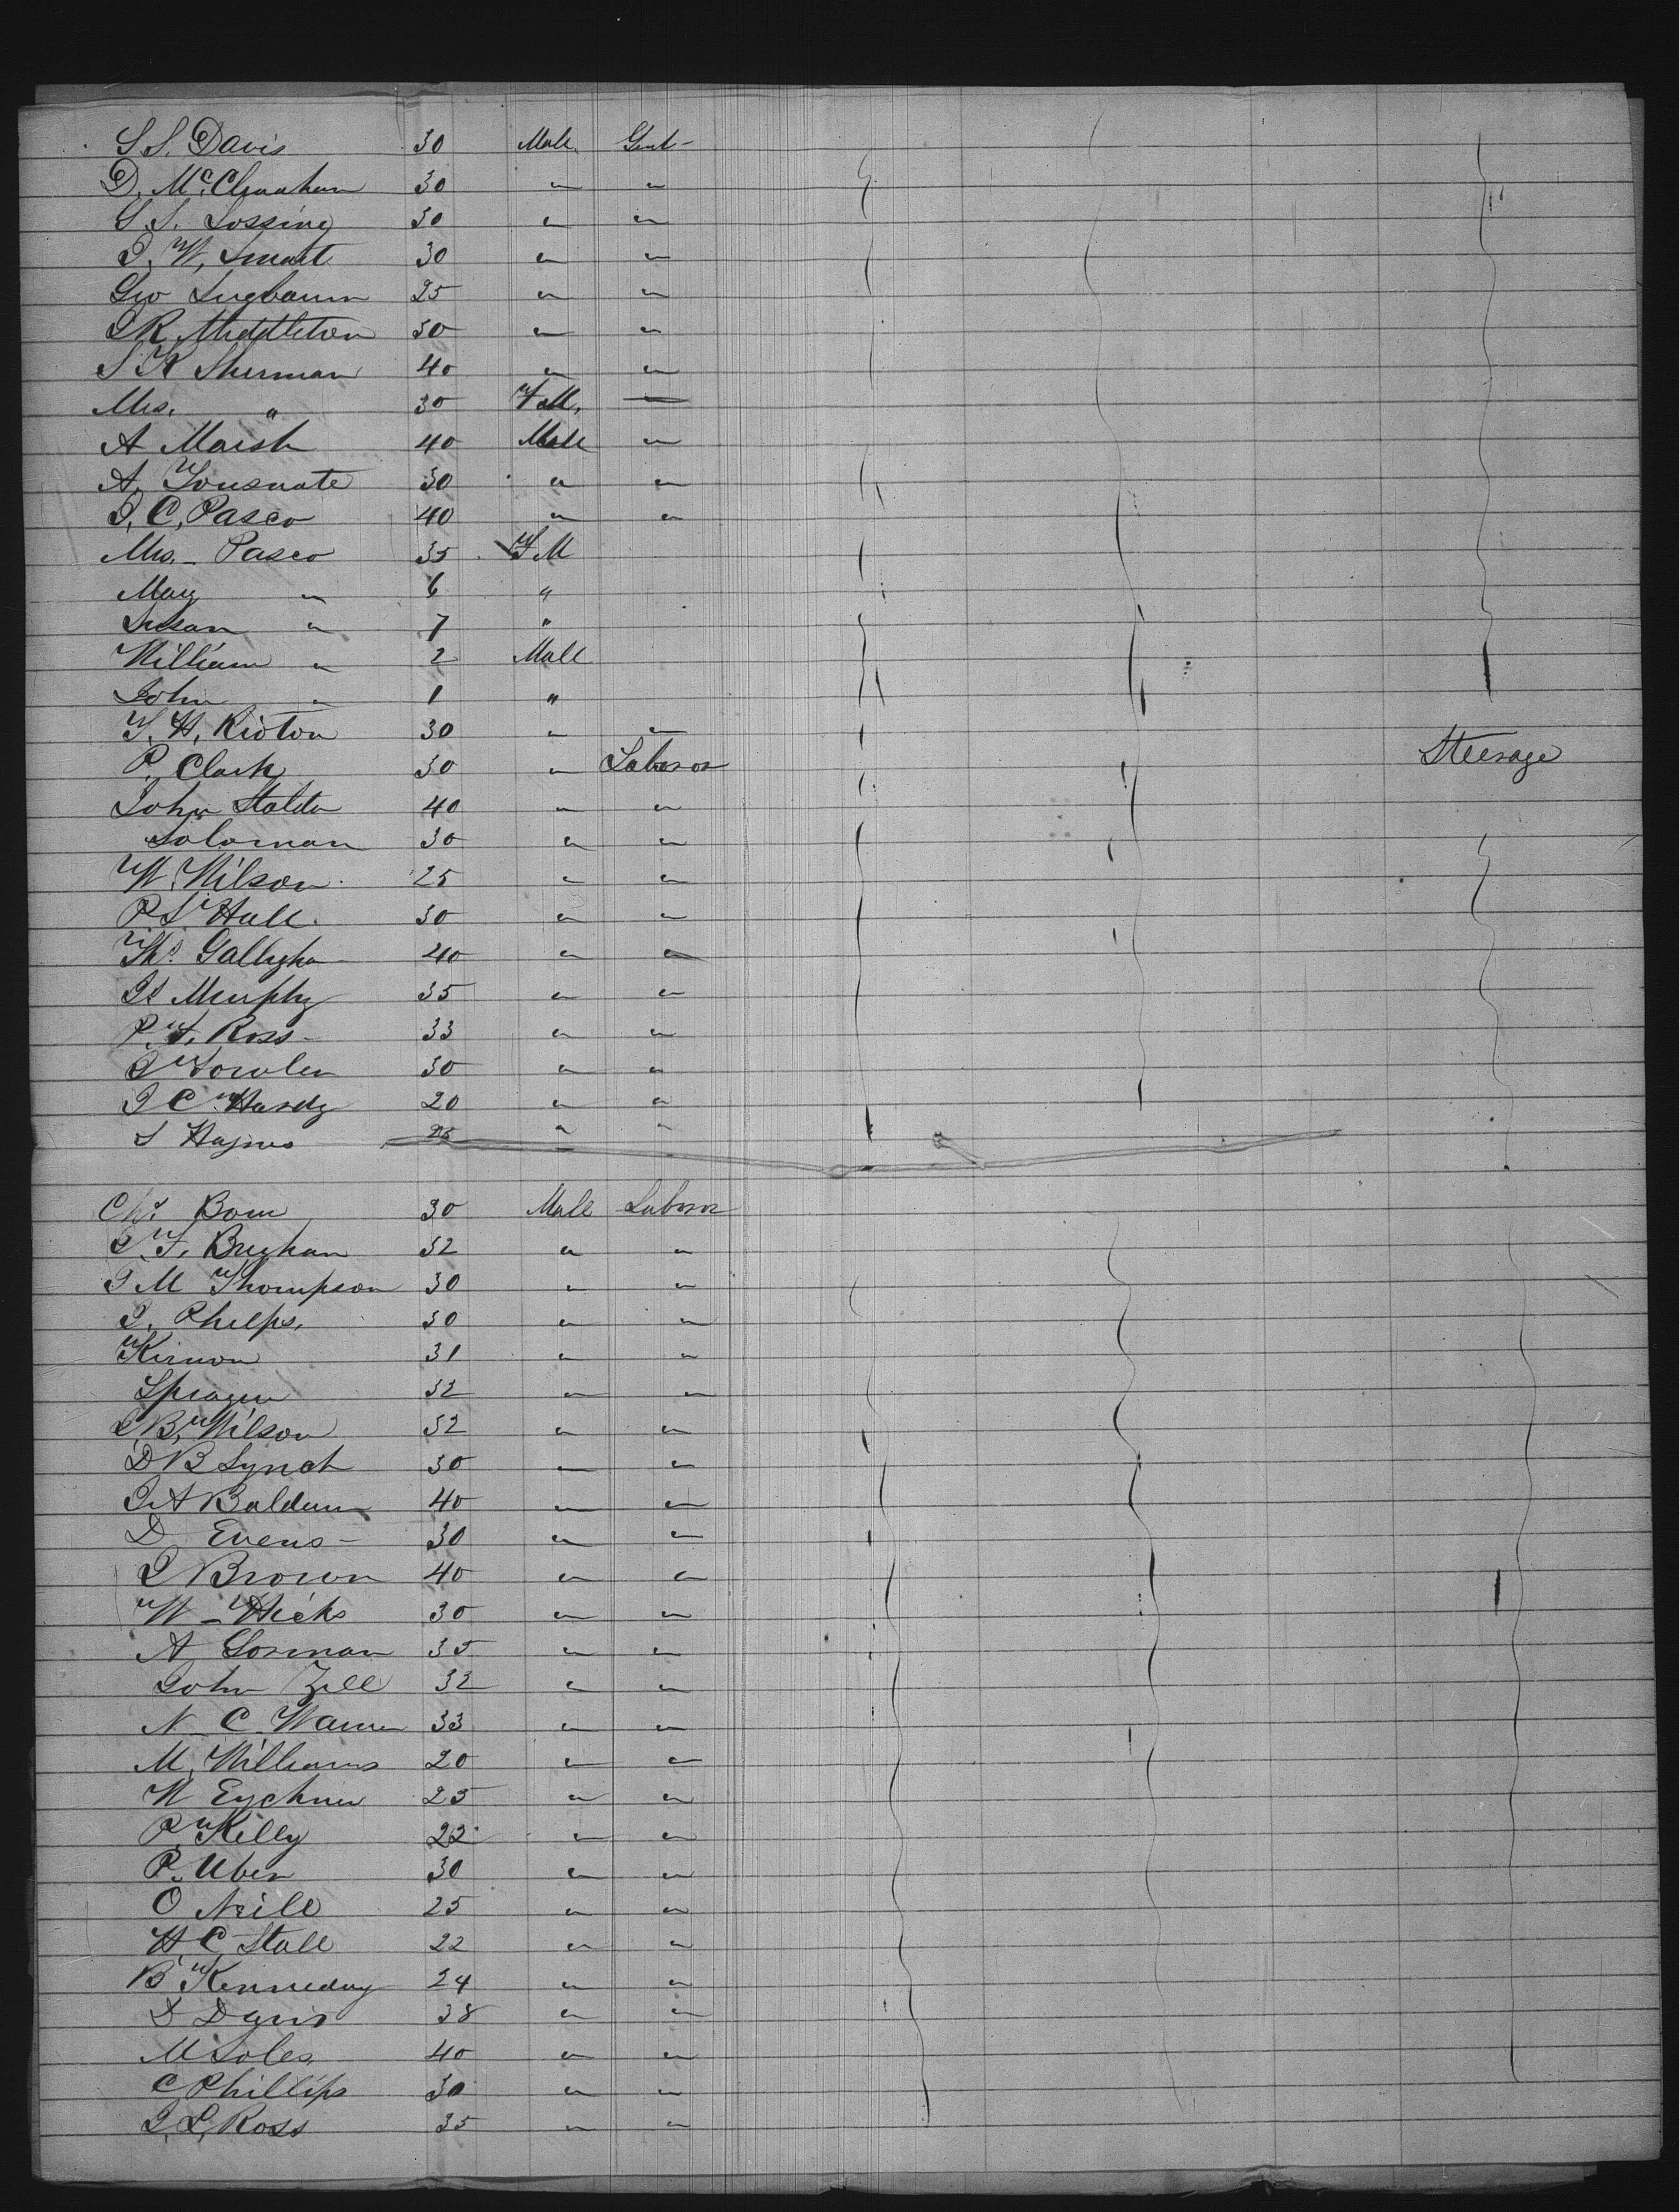 S S. Davis 30 Male. Gent -
D. Mc. Clenahan 30 " "
G. S. Lossing 30 " "
J. W. Smart 30 " "
Geo Lugbaum 25 " "
J R Middleton 30 " "
S K Sherman 40 " "
Mrs. " 30 F M. —
A Marsh 40 Male "
A. 30 " "
J. C. Pasco 40 " "
Mrs. - Pasco 35 F M
May " 6 "
Susan " 7 "
William " 2 Male
John " 1 "
T. H. Kioton 30 " "
P. Clark 30 " Laboror Steerage
John Holden 40 " "
Soloman 30 " "
W. Wilson 25 " "
P S. Hall. 30 " "
Ths. Gallagha 40 " "
Js Murphy 35 " "
P. F. Ross - 33 " "
J Fowler 30 " "
J C. Hardy 20 " "
S Haynes 25 " "
Chs. Bown 30 Male Laboror
J. F. Brighan 32 " "
J M Thompson 30 " "
J. Phelps. 30 " "
Kirnon 31 " "
Sprague 32 " "
J. B. Wilson 32 " "
D B Lynch 30 " "
J. A Balduin 40 " "
D Evens - 30 " "
J Brown 40 " "
W - Hicks 30 " "
A Gorman 35 " "
John Zell 32 " "
N. C. Warner 33 " "
M. Williams 20 " "
W Eychner 25 " "
P. Kelly 22 " "
P. Uben 30 " "
O Neill 25 " "
H. C. Stall 22 " "
B Kenneday 24 " "
D Davis 38 " "
M Soles 40 " "
C Phillips 30 " "
J. L. Ross 35 " "